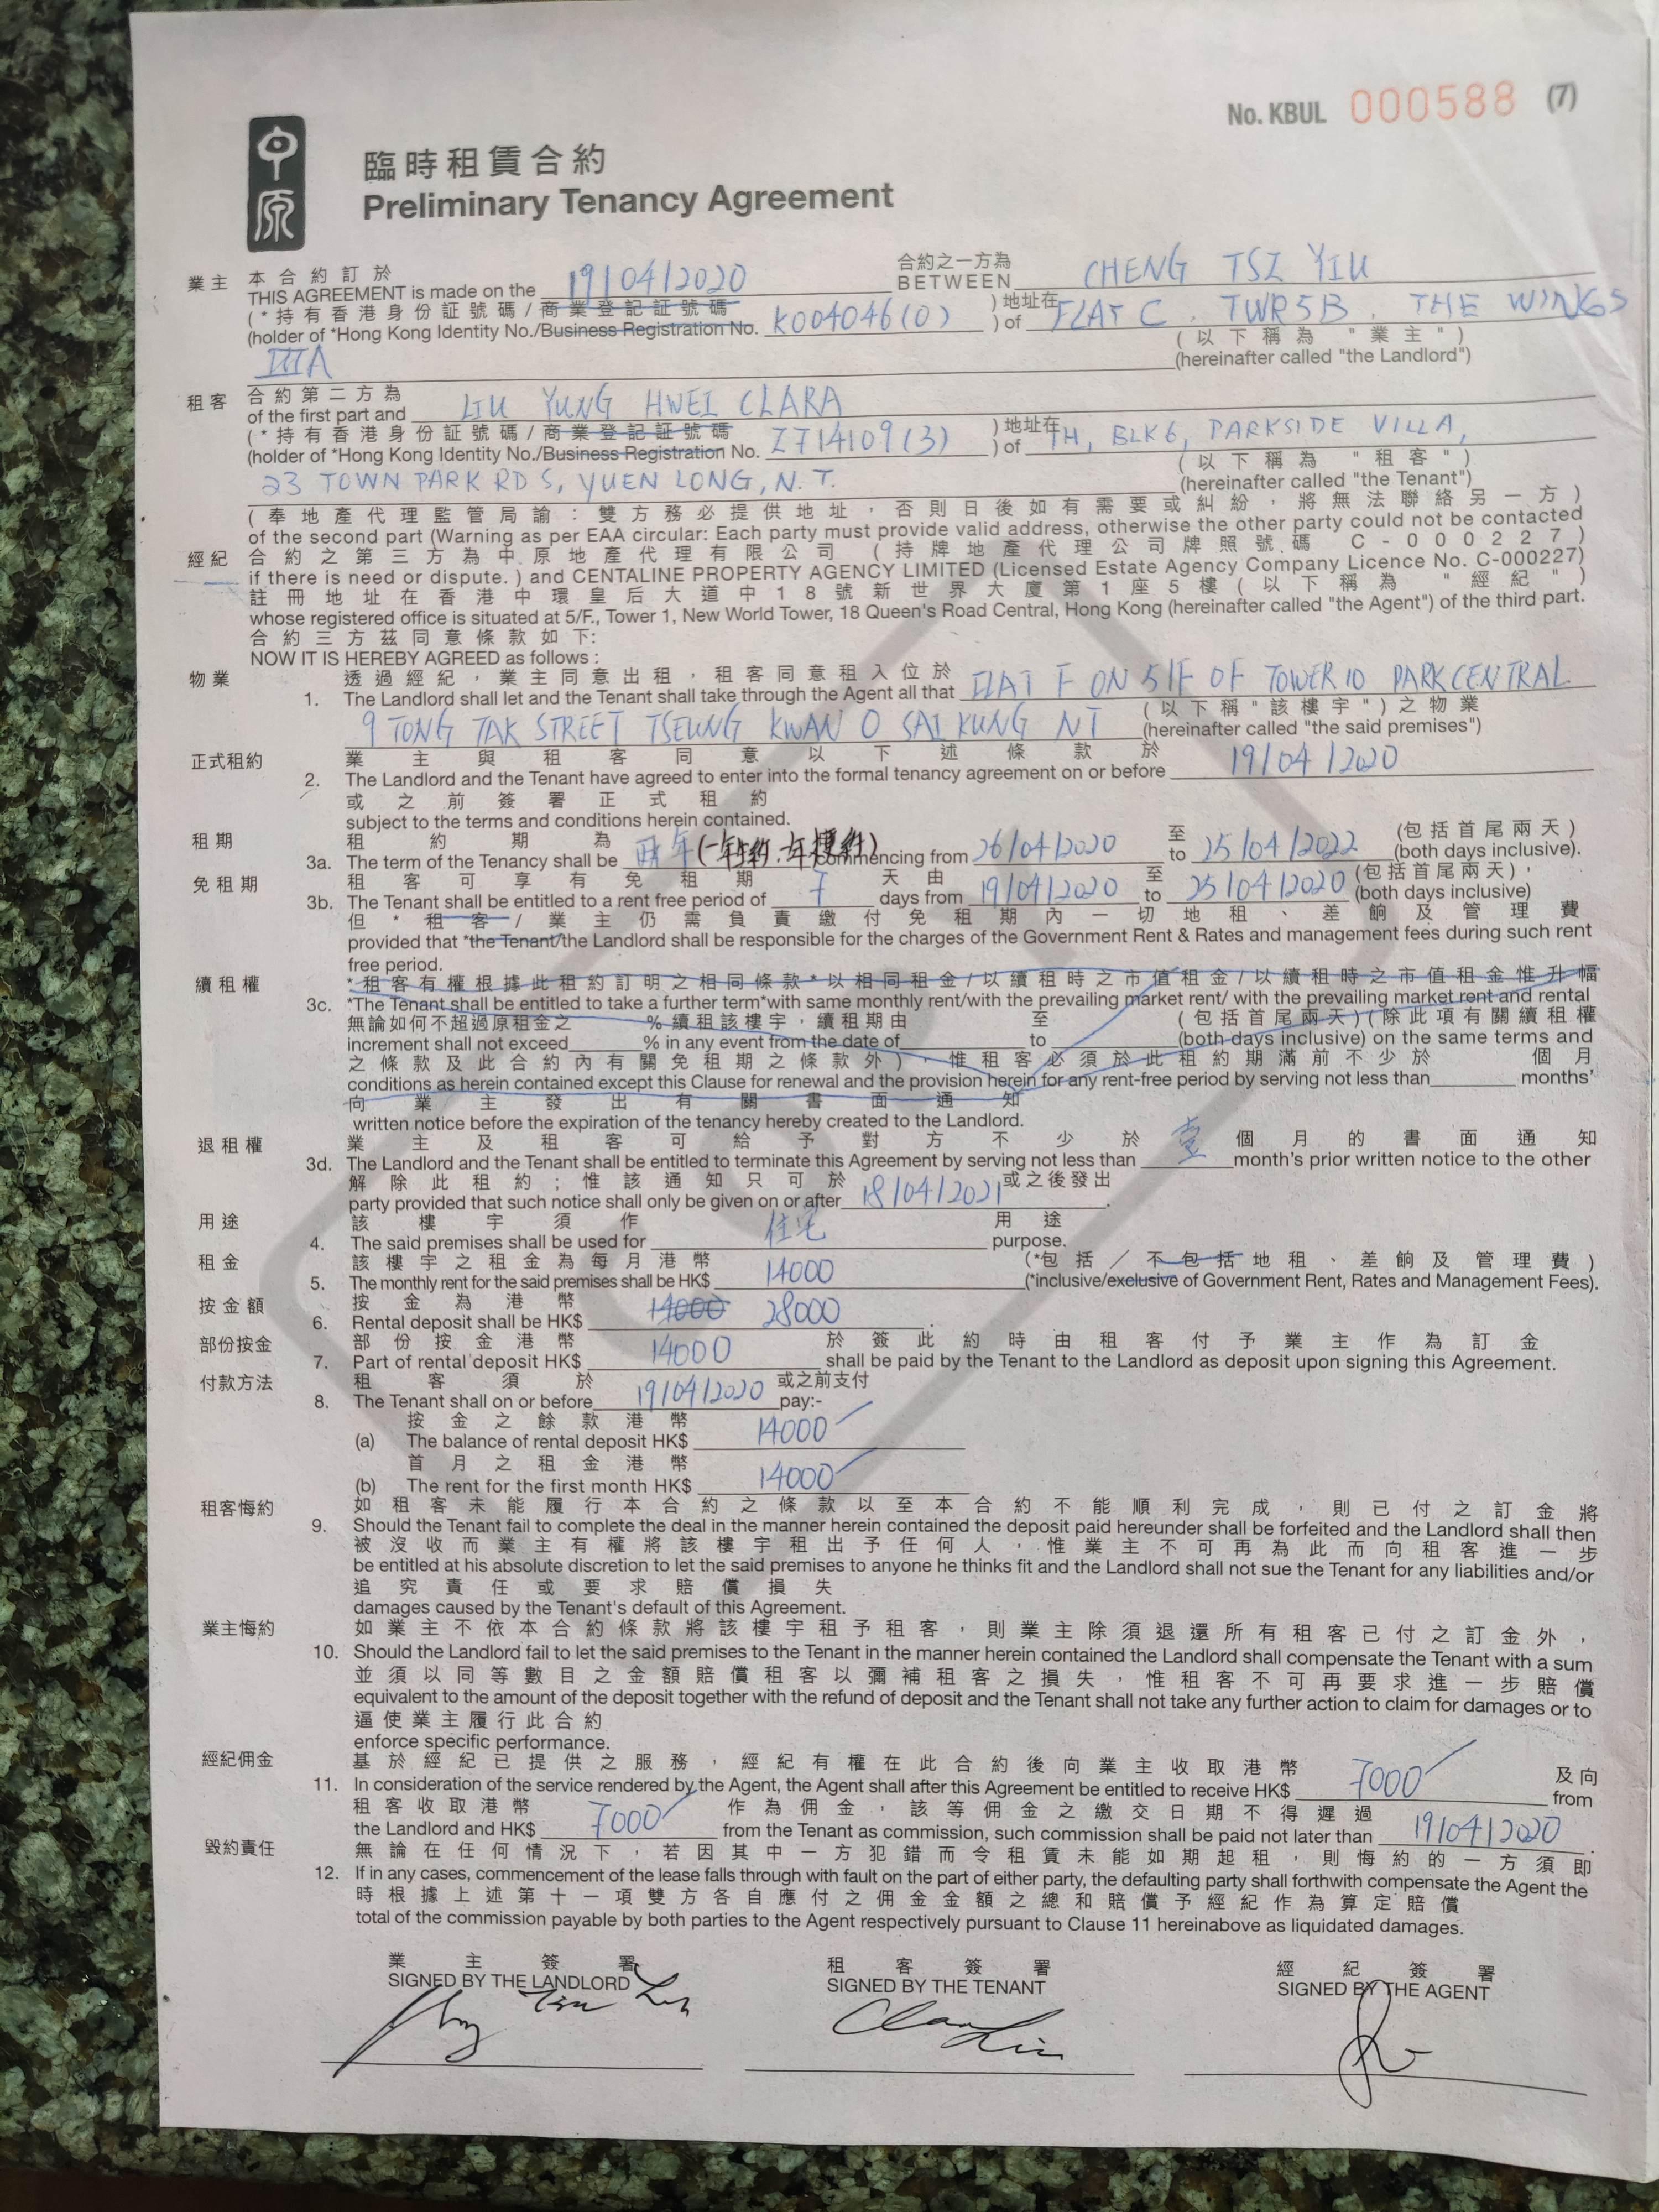 No. KBUL 000588 (7)
中原
臨時租賃合約
Preliminary Tenancy Agreement
業主 本合約訂於 合約之一方為
THIS AGREEMENT is made on the 19/04/2020 BETWEEN CHENG TSZ YIU
(*持有香港身份証號碼/商業登記証號碼 )地址在
(holder of *Hong Kong Identity No./Business Registration No. K004046(0) ) of FLAT C, TWR5B, THE WINGS
(以下稱為"業主")
IIIA (hereinafter called "the Landlord")
租客 合約第二方為
of the first part and LIU YUNG HWEI CLARA
(*持有香港身份証號碼/商業登記証號碼 )地址在
(holder of *Hong Kong Identity No./Business Registration No. Z714109(3) ) of TH, BLK6, PARKSIDE VILLA,
(以下稱為"租客")
23 TOWN PARK RD S, YUEN LONG, N.T. (hereinafter called "the Tenant")
(奉地產代理監管局諭:雙方務必提供地址,否則日後如有需要或糾紛,將無法聯絡另一方)
of the second part (Warning as per EAA circular: Each party must provide valid address, otherwise the other party could not be contacted
經紀 合約之第三方為中原地產代理有限公司(持牌地產代理公司牌照號碼 C-000227)
if there is need or dispute. ) and CENTALINE PROPERTY AGENCY LIMITED (Licensed Estate Agency Company Licence No. C-000227)
註冊地址在香港中環皇后大道中18號新世界大廈第1座5樓(以下稱為"經紀")
whose registered office is situated at 5/F., Tower 1, New World Tower, 18 Queen's Road Central, Hong Kong (hereinafter called "the Agent") of the third part.
合約三方茲同意條款如下:
NOW IT IS HEREBY AGREED as follows :
物業 透過經紀,業主同意出租,租客同意租入位於
1. The Landlord shall let and the Tenant shall take through the Agent all that FLAT F ON 51F OF TOWER 10 PARK CENTRAL
(以下稱"該樓宇")之物業
9 TONG TAK STREET TSEUNG KWAN O SAI KUNG NT (hereinafter called "the said premises")
正式租約 業主與租客同意以下述條款於
2. The Landlord and the Tenant have agreed to enter into the formal tenancy agreement on or before 19/04/2020
或之前簽署正式租約
subject to the terms and conditions herein contained.
租期 租約期為 至 (包括首尾兩天)
3a. The term of the Tenancy shall be 兩年(一年 commencing from 26/04/2020 to 25/04/2022 (both days inclusive).
免租期 租客可享有免租期 天由 至 (包括首尾兩天),
3b. The Tenant shall be entitled to a rent free period of 7 days from 19/04/2020 to 25/04/2020 (both days inclusive)
但*租客/業主仍需負責繳付免租期內一切地租、差餉及管理費
provided that *the Tenant/the Landlord shall be responsible for the charges of the Government Rent & Rates and management fees during such rent
free period.
續租權 *租客有權根據此租約訂明之相同條款*以相同租金/以續租時之市值租金/以續租時之市值租金惟升幅
3c. *The Tenant shall be entitled to take a further term*with same monthly rent/with the prevailing market rent/ with the prevailing market rent and rental
無論如何不超過原租金之 %續租該樓宇,續租期由 至 (包括首尾兩天)(除此項有關續租權
increment shall not exceed % in any event from the date of to (both days inclusive) on the same terms and
之條款及此合約內有關免租期之條款外),惟租客必須於此租約期滿前不少於 個月
conditions as herein contained except this Clause for renewal and the provision herein for any rent-free period by serving not less than months'
向業主發出有關書面通知
written notice before the expiration of the tenancy hereby created to the Landlord.
退租權 業主及租客可給予對方不少於 壹 個月的書面通知
3d. The Landlord and the Tenant shall be entitled to terminate this Agreement by serving not less than month's prior written notice to the other
解除此租約;惟該通知只可於 或之後發出
party provided that such notice shall only be given on or after 18/04/2021.
用途 該樓宇須作 用途
4. The said premises shall be used for 住宅 purpose.
租金 該樓宇之租金為每月港幣 (*包括/不包括地租、差餉及管理費)
5. The monthly rent for the said premises shall be HK$ 14000 (*inclusive/exclusive of Government Rent, Rates and Management Fees).
按金額 按金為港幣
6. Rental deposit shall be HK$ 14000 28000.
部份按金 部份按金港幣 於簽此約時由租客付予業主作為訂金
7. Part of rental deposit HK$ 14000 shall be paid by the Tenant to the Landlord as deposit upon signing this Agreement.
付款方法 租客須於 或之前支付
8. The Tenant shall on or before 19/04/2020 pay:-
按金之餘款港幣
(a) The balance of rental deposit HK$ 14000
首月之租金港幣
(b) The rent for the first month HK$ 14000
租客悔約 如租客未能履行本合約之條款以至本合約不能順利完成,則已付之訂金將
9. Should the Tenant fail to complete the deal in the manner herein contained the deposit paid hereunder shall be forfeited and the Landlord shall then
被沒收而業主有權將該樓宇租出予任何人,惟業主不可再為此而向租客進一步
be entitled at his absolute discretion to let the said premises to anyone he thinks fit and the Landlord shall not sue the Tenant for any liabilities and/or
追究責任或要求賠償損失
damages caused by the Tenant's default of this Agreement.
業主悔約 如業主不依本合約條款將該樓宇租予租客,則業主除須退還所有租客已付之訂金外,
10. Should the Landlord fail to let the said premises to the Tenant in the manner herein contained the Landlord shall compensate the Tenant with a sum
並須以同等數目之金額賠償租客以彌補租客之損失,惟租客不可再要求進一步賠償
equivalent to the amount of the deposit together with the refund of deposit and the Tenant shall not take any further action to claim for damages or to
逼使業主履行此合約
enforce specific performance.
經紀佣金 基於經紀已提供之服務,經紀有權在此合約後向業主收取港幣 及向
11. In consideration of the service rendered by the Agent, the Agent shall after this Agreement be entitled to receive HK$ 7000 from
租客收取港幣 作為佣金,該等佣金之繳交日期不得遲過
the Landlord and HK$ 7000 from the Tenant as commission, such commission shall be paid not later than 19/04/2020.
毀約責任 無論在任何情況下,若因其中一方犯錯而令租賃未能如期起租,則悔約的一方須即
12. If in any cases, commencement of the lease falls through with fault on the part of either party, the defaulting party shall forthwith compensate the Agent the
時根據上述第十一項雙方各自應付之佣金金額之總和賠償予經紀作為算定賠償
total of the commission payable by both parties to the Agent respectively pursuant to Clause 11 hereinabove as liquidated damages.
業主簽署 租客簽署 經紀簽署
SIGNED BY THE LANDLORD SIGNED BY THE TENANT SIGNED BY THE AGENT
COPY